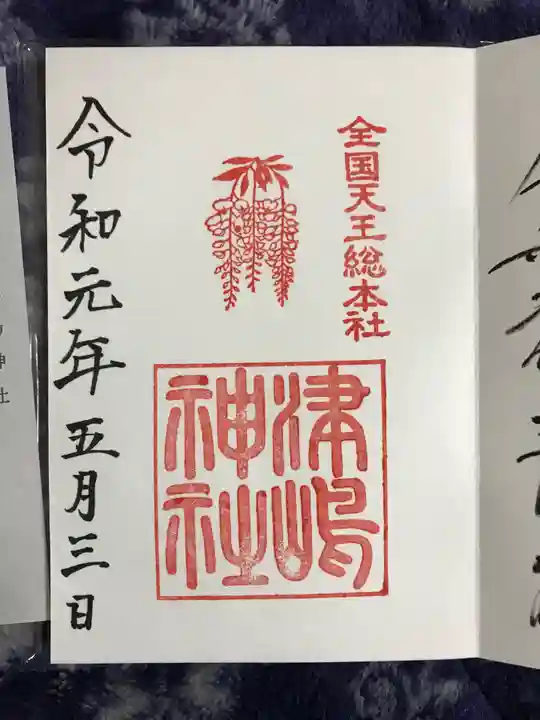 全国天王総本社
津嶋
神社
令和元年五月三日
神社